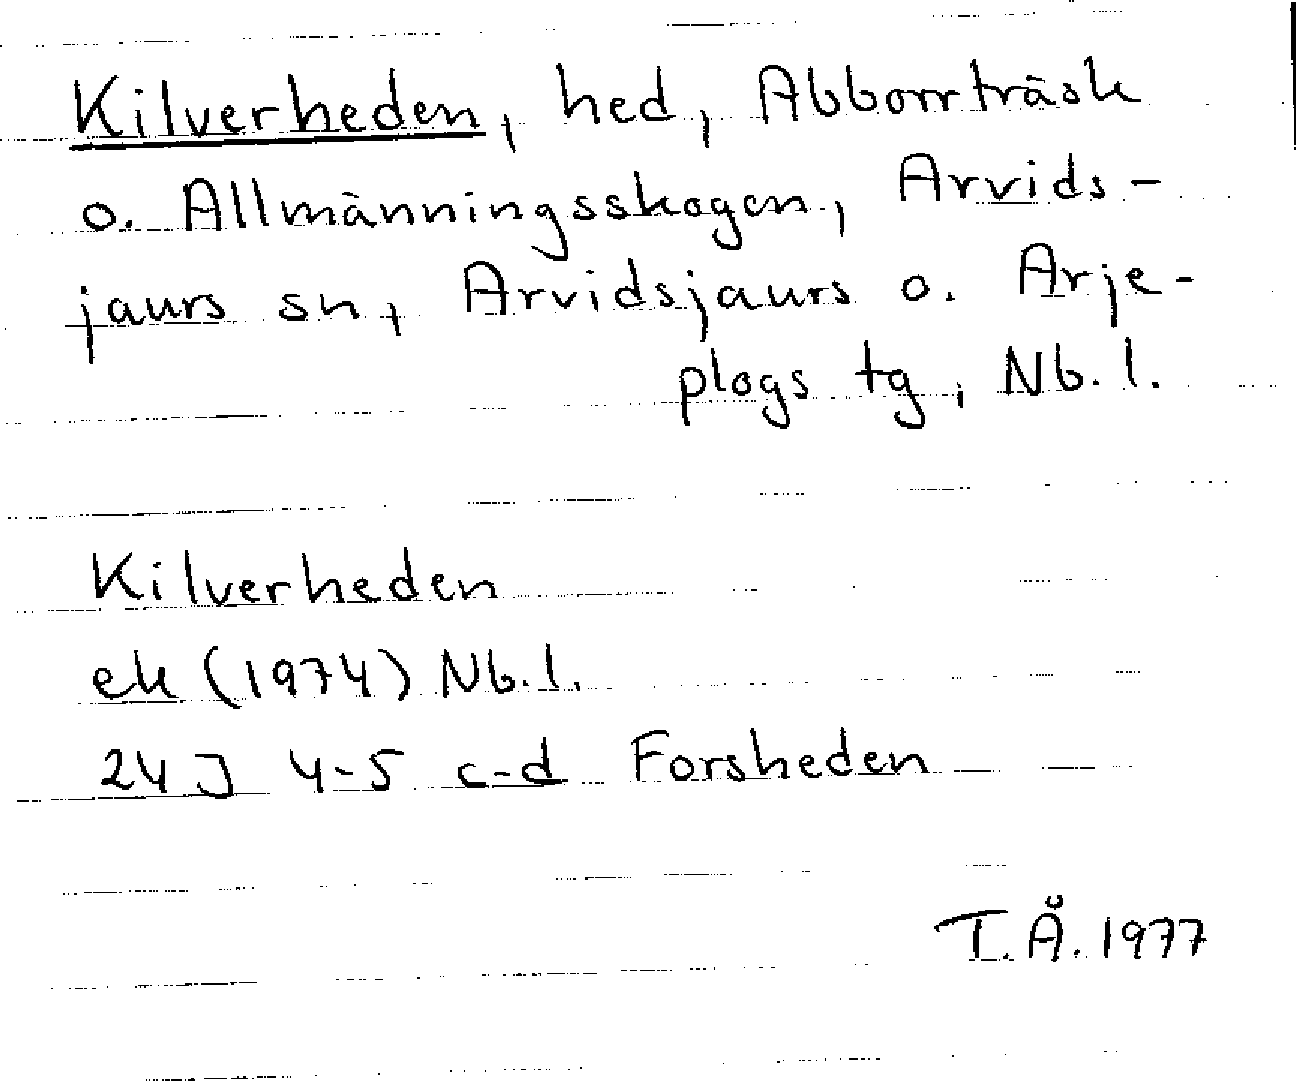 Kilverheden, hed, Abborrträsk
o. Allmänningsskogen, Arvids-
jaurs sn, Arvidsjaurs o. Arje-
plogs tg, Nb. l.
Kilverheden
ek (1974) Nb. l.
24 J 4-5 c-d Forsheden
T. Å. 1977